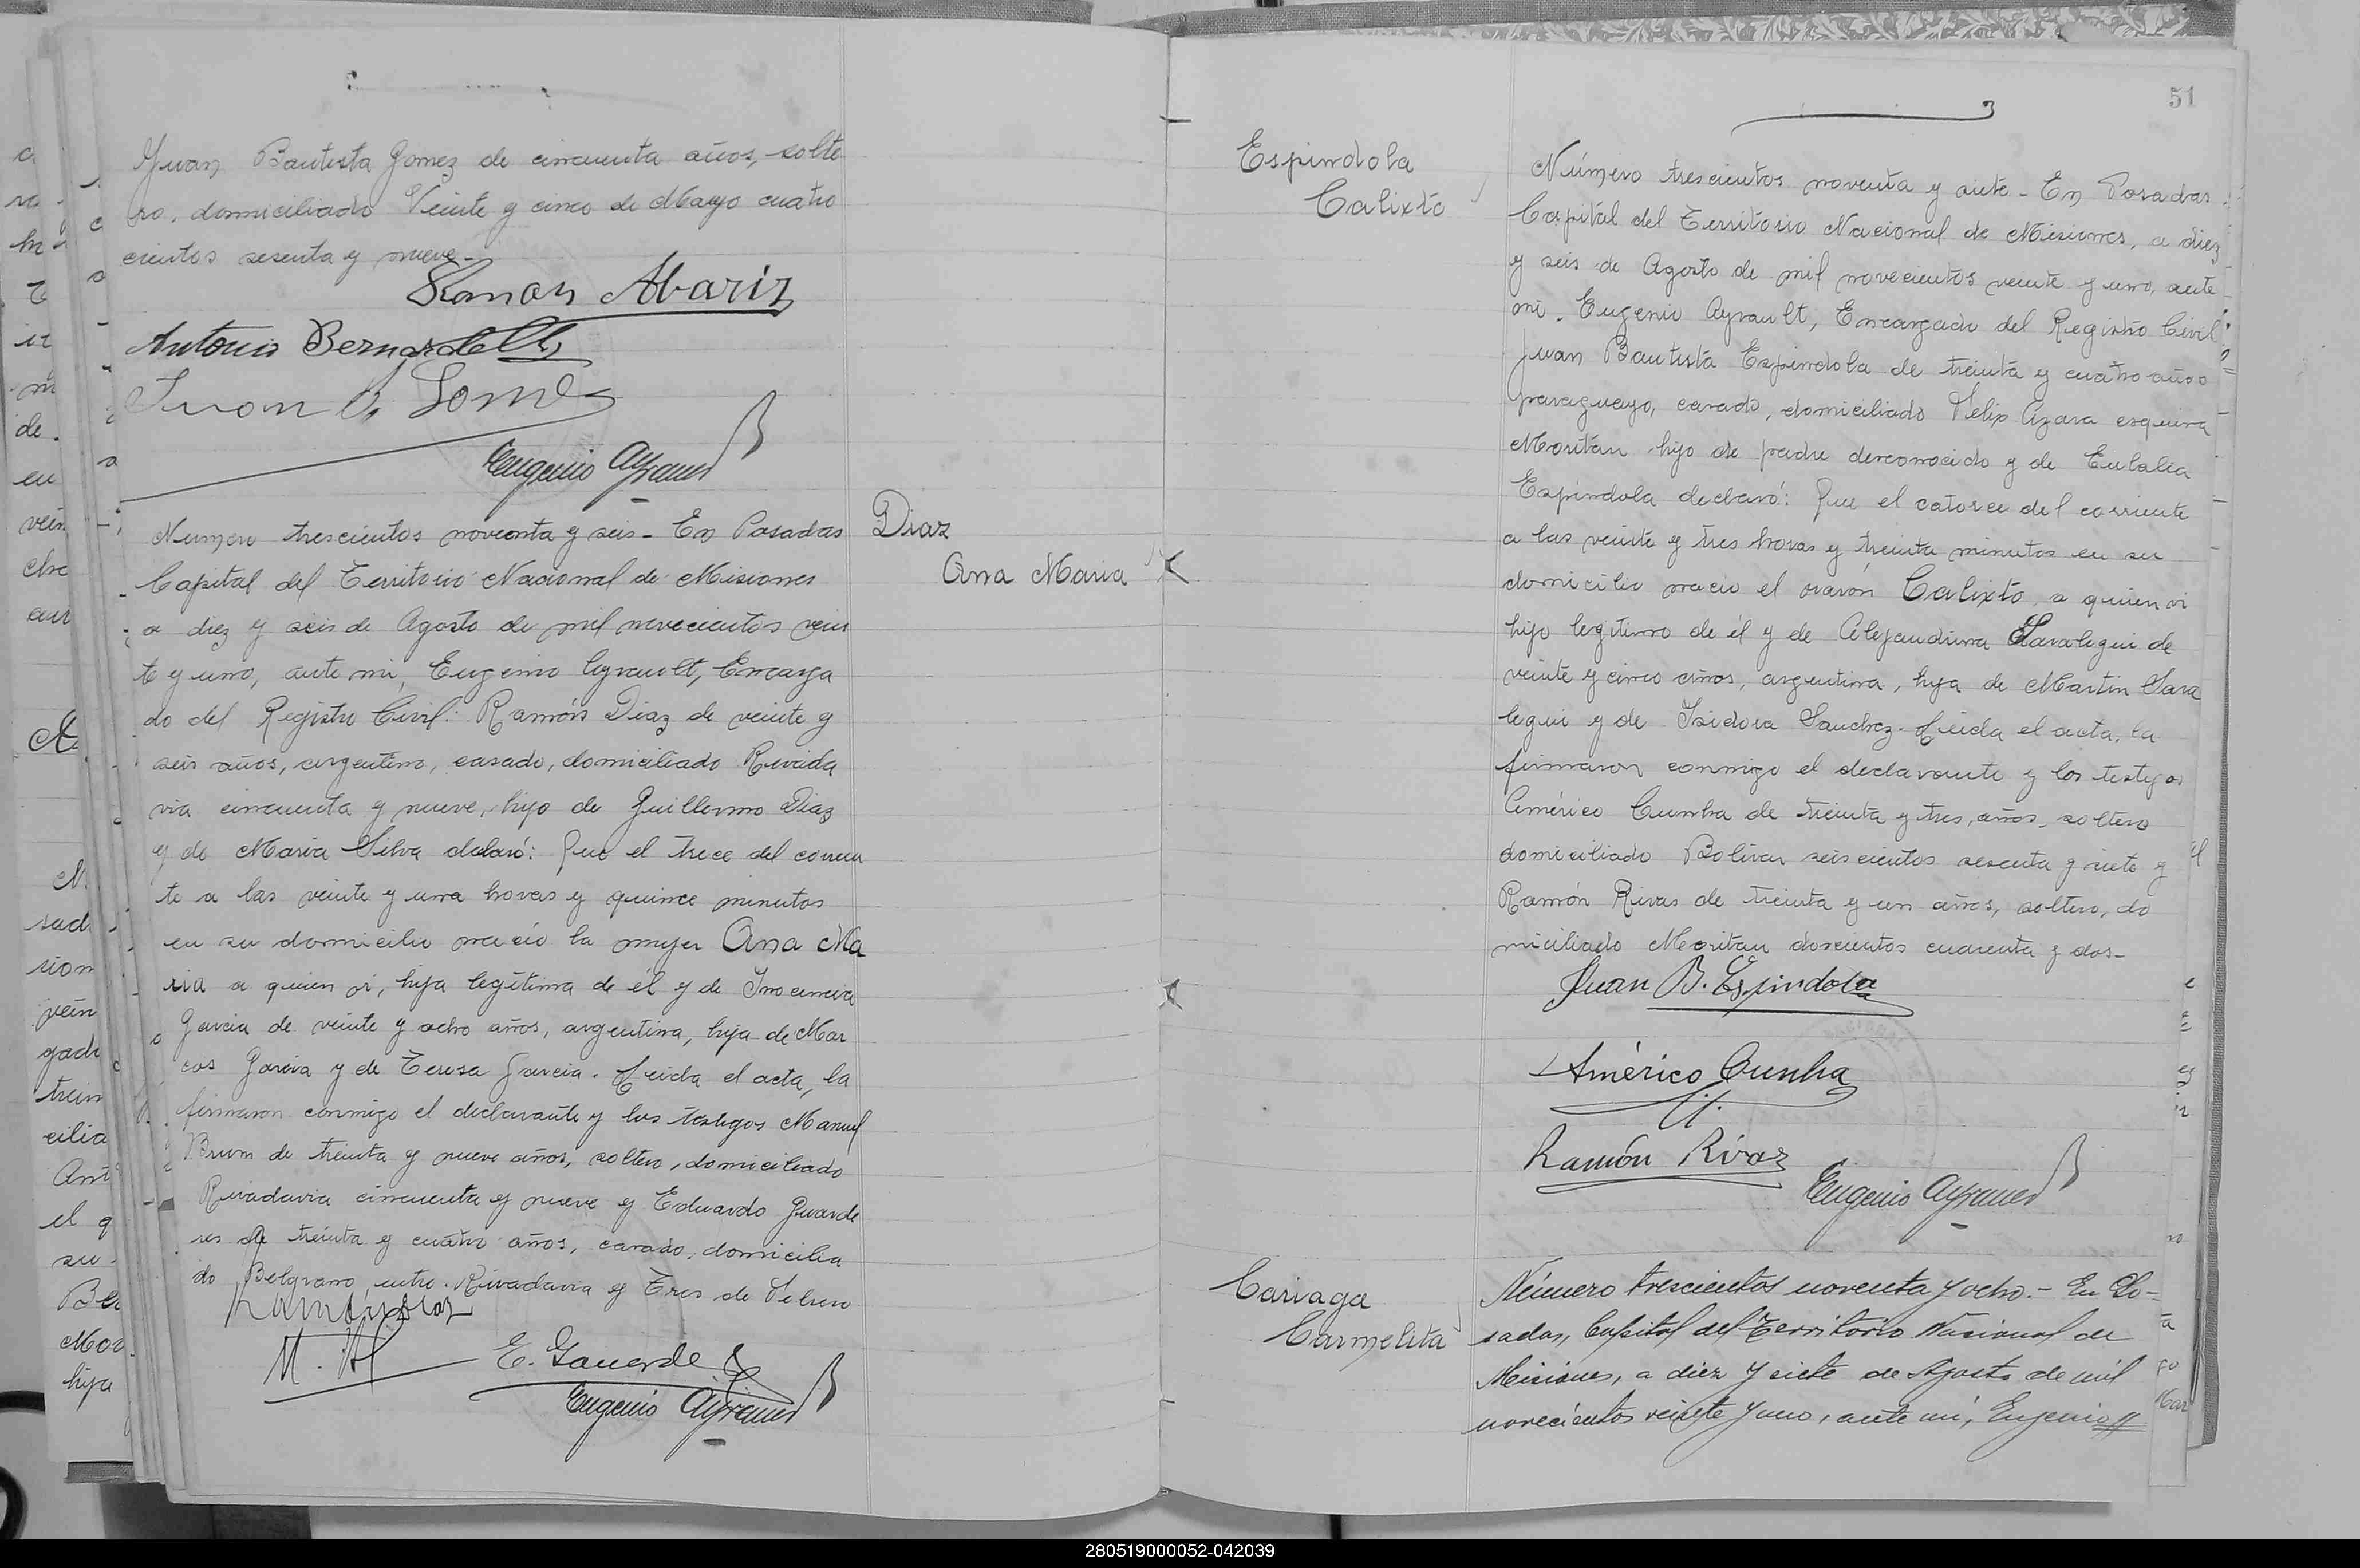 Juan Bautista Gomez de cincuenta años, solte
ro, domiciliado Veinte y cinco de Mayo cuatro
cientos sesenta y nueve-
Ramon Abariz
Antonio Bernardelli
Juan B. Gomes
Eugenio Ayrault
Número trescientos noventa y seis - En Posadas
Capital del Territorio Nacional de Misiones
a diez y seis de Agosto de mil novecientos vein
te y uno, ante mi, Eugenio Ayrault, Encarga
do del Registro Civil: Ramón Diaz de veinte y
seis años, argentino, casado, domiciliado Rivada
via cincuenta y nueve, hijo de Guillermo Diaz
y de Maria Silva declaró: Que el trece del corrien
te a las veinte y una horas y quince minutos
en su domicilio nació la mujer Ana Ma
ria a quien vi, hija legítima de él y de Inocencia
Garcia de veinte y ocho años, argentina, hija de Mar
cos Garcia y de Teresa Garcia. Leida el acta, la
firmaron conmigo el declarante y los testigos Manuel
Brum de treinta y nueve años, soltero, domiciliado
Rivadavia cincuenta y nueve y Eduardo Guarde
res de treinta y cuatro años, casado, domicilia
do Belgrano entre Rivadavia y Tres de Febrero
Ramón Diaz
E. Gauerde
Eugenio Ayrault
Diaz
Ana Maria
51
Espindola
Calixto
Número trescientos noventa y siete - En Posadas
Capital del Territorio Nacional de Misiones, a diez
y seis de Agosto de mil novecientos veinte y uno, ante
mi, Eugenio Ayrault, Encargado del Registro Civil
Juan Bautista Espindola de treinta y cuatro años
paraguayo, casado, domiciliado Felix Azara esquina
Moritan hijo de padre desconocido y de Eulalia
Espindola declaró: Que el catorce del corriente
a las veinte y tres horas y treinta minutos en su
domicilio nació el varón Calixto, a quien vi
hijo legítimo de él y de Alejandrina Saralegui de
veinte y cinco años, argentina, hija de Martin Sara
legui y de Isidora Sanchez. Leida el acta, la
firmaron conmigo el declarante y los testigos
Américo Cunha de treinta y tres años, soltero
domiciliado Bolivar seiscientos sesenta y siete y
Ramón Rivas de treinta y un años, soltero, do
miciliado Moritan doscientos cuarenta y dos-
Juan B. Espindola
Américo Cunha
Ramón Rivas
Eugenio Ayrault
Cariaga
Carmelita
Número trescientos noventa y ocho.- En Po-
sadas, Capital del Territorio Nacional de
Misiones, a diez y siete de Agosto de mil
novecientos veinte y uno, ante mi, Eugenio
280519000052-042039